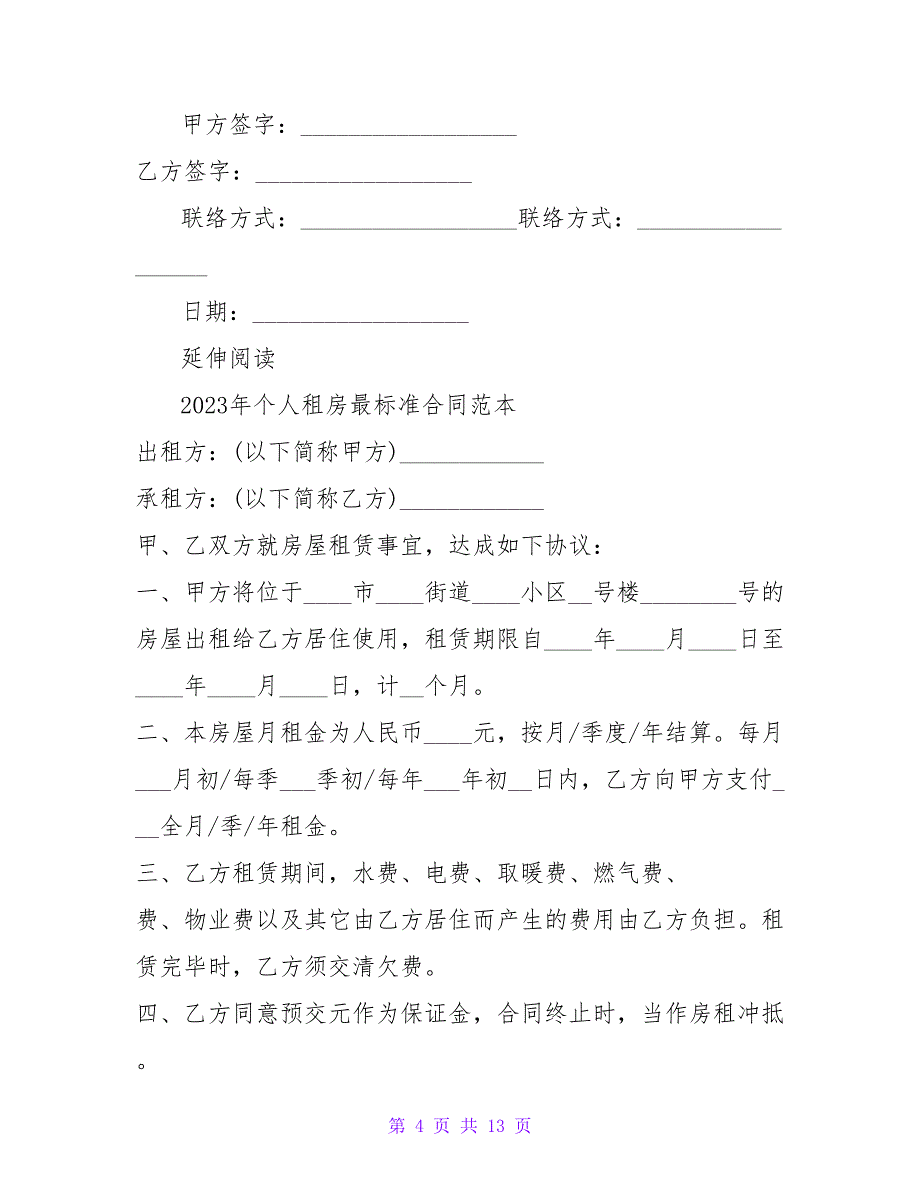 甲方签字：__________________
乙方签字：__________________
联络方式：__________________联络方式：____________
______
日期：__________________
延伸阅读
2023年个人租房最标准合同范本
出租方：(以下简称甲方)____________
承租方：(以下简称乙方)____________
甲、乙双方就房屋租赁事宜，达成如下协议：
一、甲方将位于____市____街道____小区__号楼________号的
房屋出租给乙方居住使用，租赁期限自____年____月____日至
____年____月____日，计__个月。
二、本房屋月租金为人民币____元，按月/季度/年结算。每月
___月初/每季___季初/每年___年初__日内，乙方向甲方支付_
__全月/季/年租金。
三、乙方租赁期间，水费、电费、取暖费、燃气费、
费、物业费以及其它由乙方居住而产生的费用由乙方负担。租
赁完毕时，乙方须交清欠费。
四、乙方同意预交元作为保证金，合同终止时，当作房租冲抵
。
第 4 页 共 13 页